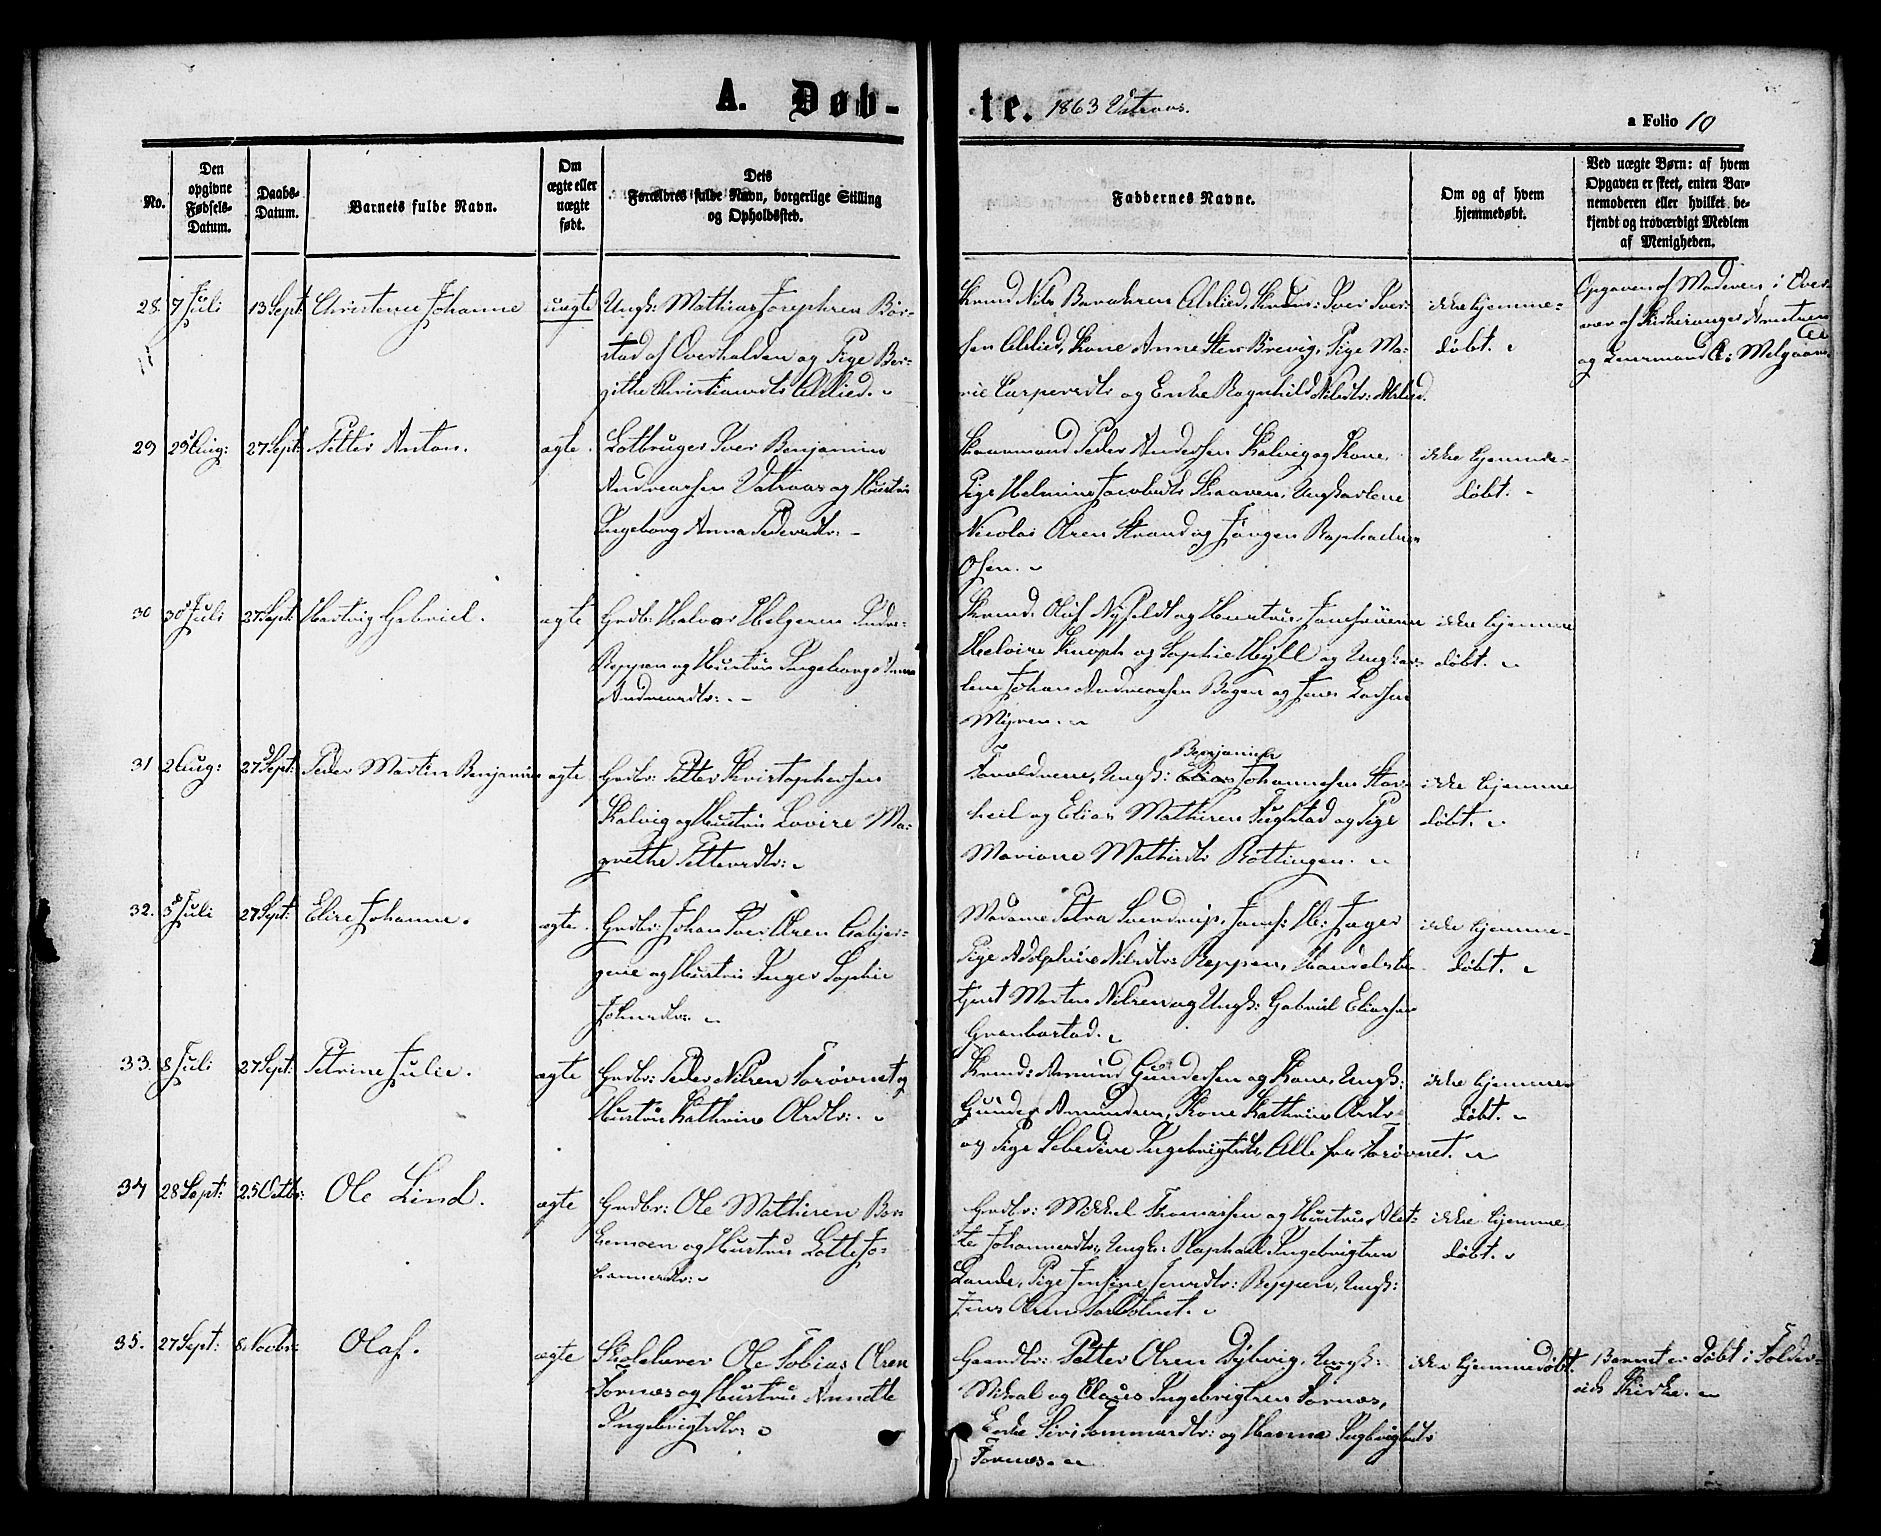 A. Døb-
te. 1863 Vatraas.
a Folio 10
No.
Den
opgivne
Fødsels-
Datum.
Daabs-
Datum.
Barnets fulde Navn.
Om
ægte eller
uægte
født.
Dets
Forældres fulde Navn, borgerlige Stilling
og Opholdssted.
Faddernes Navne.
Om og af hvem
hjemmedøbt.
Ved uægte Børn: af hvem
Opgaven er skeet, enten Bar-
nemoderen eller hvilket be-
kjendt og troværdigt Medlem
af Menigheden.
28. 7 Juli 13 Sept: Christense Johanne uægte
Ungk: Mathias Josephsen Bør-
stad af Overhalden og Pige Ber-
githe Christiansdtr
Nils Iver Iver-
sen Kone Anne Brevig, Pige Ma-
rie og Enke Ragnhild Nilsdtr:
ikke hjemme-
døbt.
Opgaven af Moderen i Over-
vær af Kirkesanger
og
29 29 Aug: 27 Sept: Petter Anton. ægte.
Iver Benjamin
Andreassen Vatraas og Hustru
Ingeborg Anna Pedersdtr: -
Peder Andersen Kalvig og Kone,
Pige Helmine Jacobsdtr Skraaven, Ungkarlene
Nicolai Olsen Strand og Jørgen Raphaelsen
Osen.
ikke hjemme-
døbt. -
30 30 Juli 27 Sept: Hartvig Gabriel. ægte
Grdbr: Halvor Helgesen Indre-
Reppen og Hustru Ingeborg Anna
Andreasdtr: -
Oluf Nyfeldt og Hustru, Jomfruerne
Helvire Knoph og Sophie Hyll og Ungkar-
lene Johan Andreassen Bogen og Jens
Myren.
ikke hjemme
døbt.
31 2 Aug: 27 Sept: Peder Martin Benjamin ægte
Grdbr: Petter Kristophersen
Kalvig og Hustru Lovise Ma-
grethe Pettersdtr:
Benjamin
Forældrene, Ungk: Elias Johannesen
og Elias Mathisen Fuglstad og Pige
Mariane Mathisdtr Røttingen.
ikke hjemme
døbt.
32. 3 Juli 27 Sept: Elise Johanne. ægte.
Grdbr: Johan Iver Olsen
og Hustru Inger Sophie
Johnsdtr:
Madame Petra Sverdrup, Jomf: H: Jæger
Pige Adolphine Nilsdtr: Reppen, Handelsbe-
tjent Morten Nilsen og Ungk: Gabriel Eliassen
Grønbostad.
ikke hjemme-
døbt.
33. 8 Juli 27 Sept: Petrine Julie. ægte
Grdbr: Peder Nilsen Sørøvnet og
Hustru Kathrine Olsdtr:.
Amund Gundersen og Kone, Ungk:
Gunder Amundsen, Kone Kathrine Olsdtr
og Pige Ingebrigtsdtr, Alle fra Sørøvnet.
ikke hjemme
døbt.
34 28 Sept: 25 Octbr: Ole Lind. ægte
Grdbr: Ole Mathisen
og Hustru Lotte Jo-
hannesdtr:
Grdbr: Mikkel Thomassen og Hustru Alet-
te Johannesdtr:, Ungk: Raphael Ingebrigtsen
Lande, Pige Jensine Jensdtr: Reppen, Ungk:
Jens Olsen
ikke hjemme
døbt.
35. 27 Sept: 8 Novbr: Olaf. ægte
Skolelærer Ole Tobias Olsen
Sørnæs og Hustru Annette
Ingebrigtsdtr:
Gaardbr: Petter Olsen Dybvig, Ungk:
Mikal og Claus Ingebrigtsen Sørnæs,
Enke Siri og Hanna Ingebrigtsdtr
Sørnæs.
ikke hjemmedøbt.
Barnet er døbt i Folder-
eids Kirke.